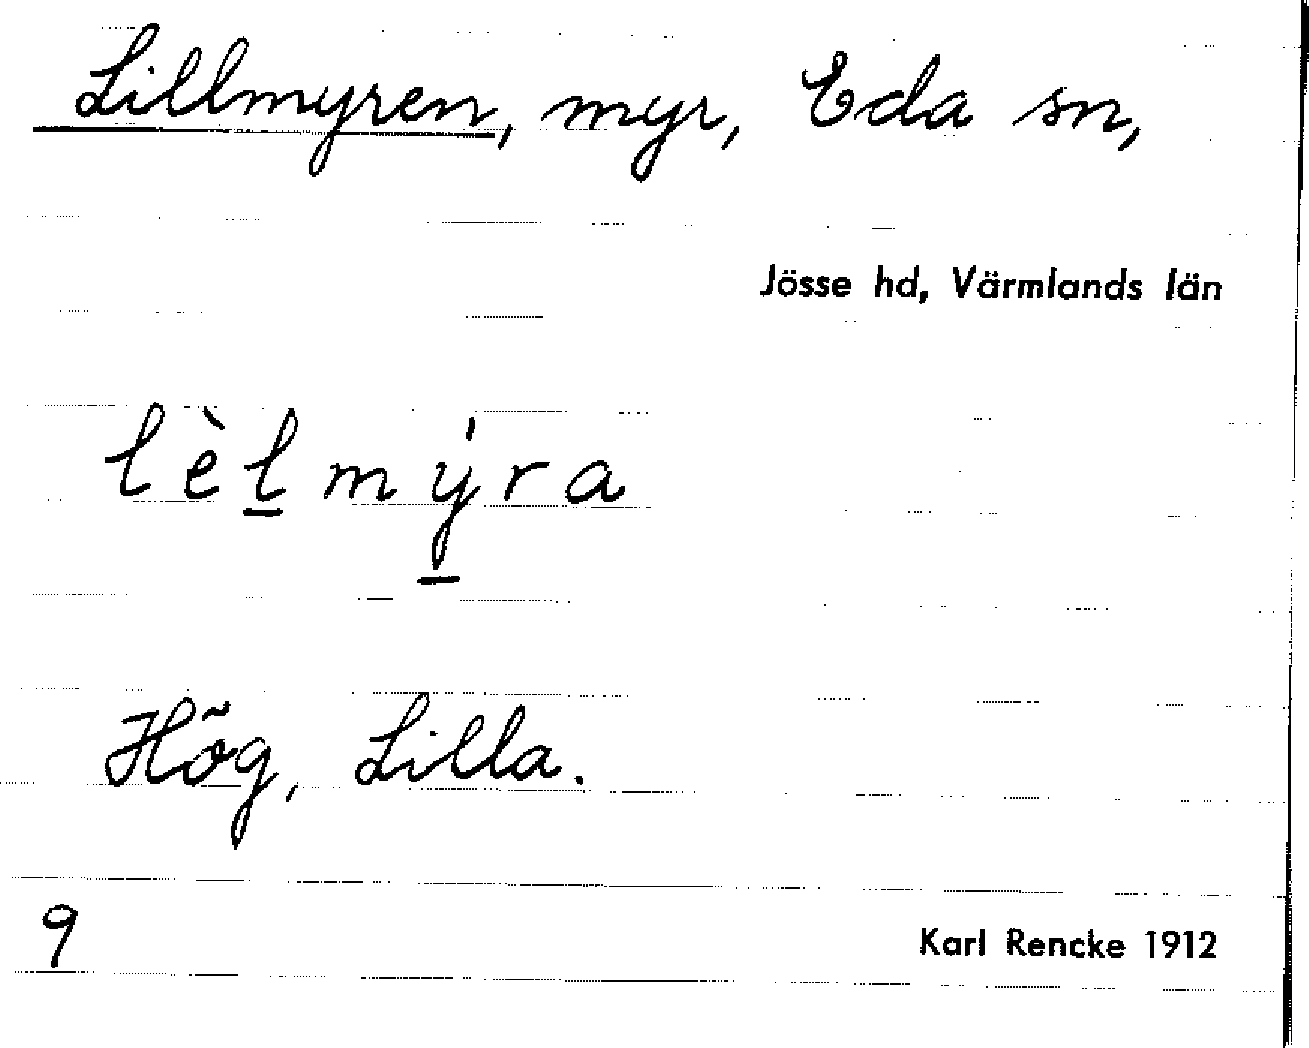 Lillmyren, myr, Eda sn,
Jösse hd, Värmlands län
lèl̲mý̲ra
Hög, Lilla.
9
Karl Rencke 1912